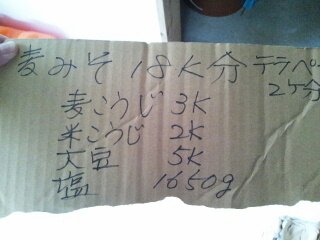 麦みそ 18K分 テラペー
25分
麦こうじ 3K
米こうじ 2K
大豆 5K
塩 1650g